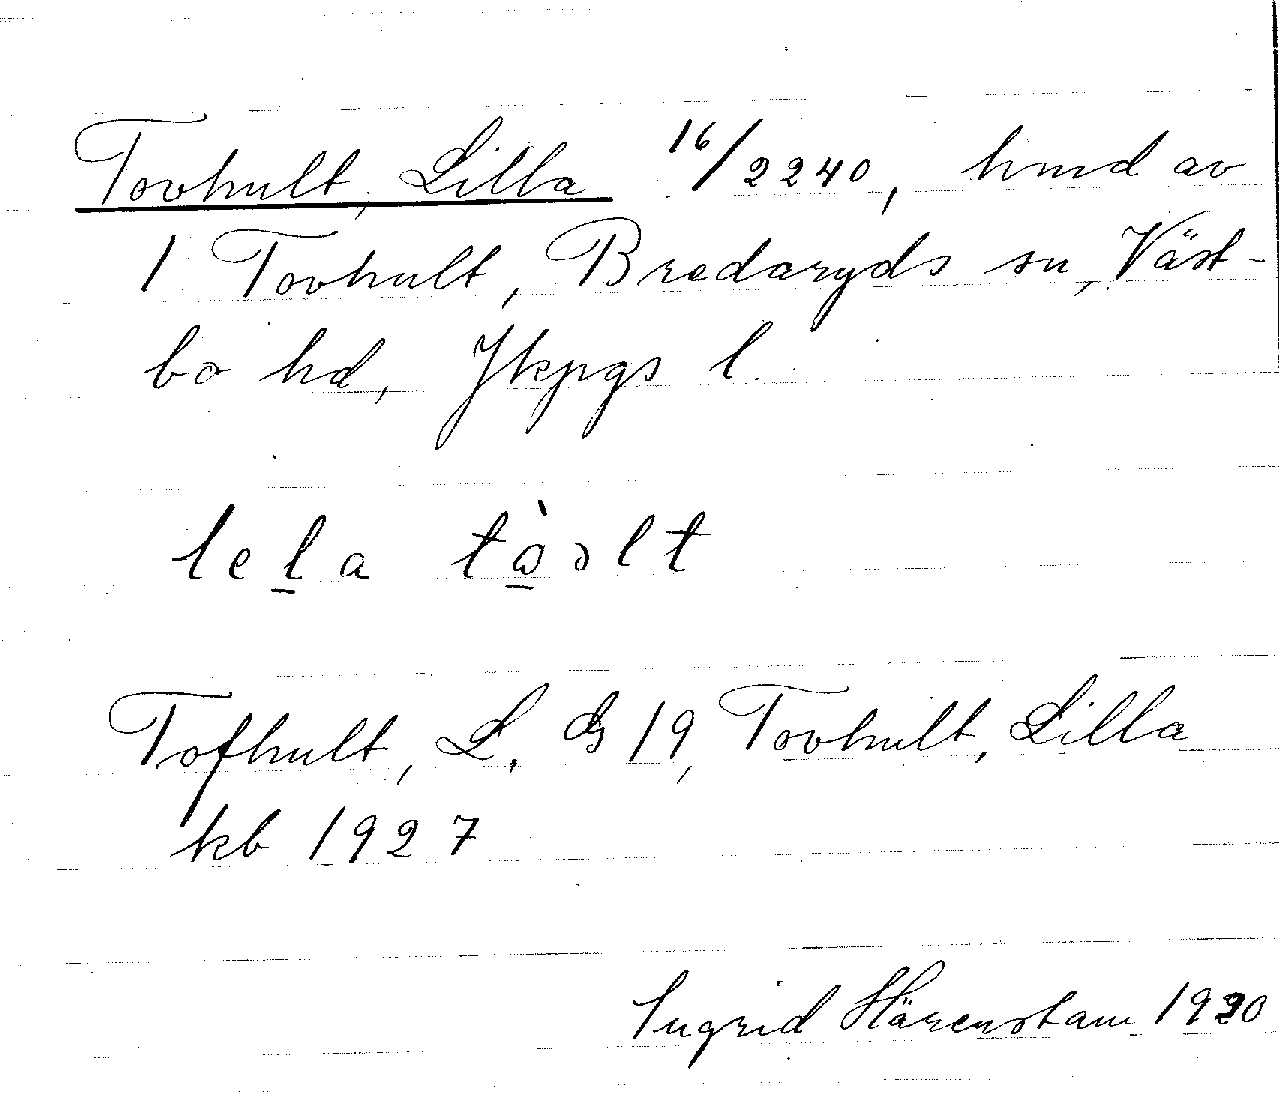 Tovhult, Lilla 16/2240, hmd av
1 Tovhult, Bredaryds sn, Väst-
bo hd, Jkpgs l.
lela tòɔlt
Tofhult, L. ds 19, Tovhult, Lilla
kb 1927
Ingrid Härenstam 1930